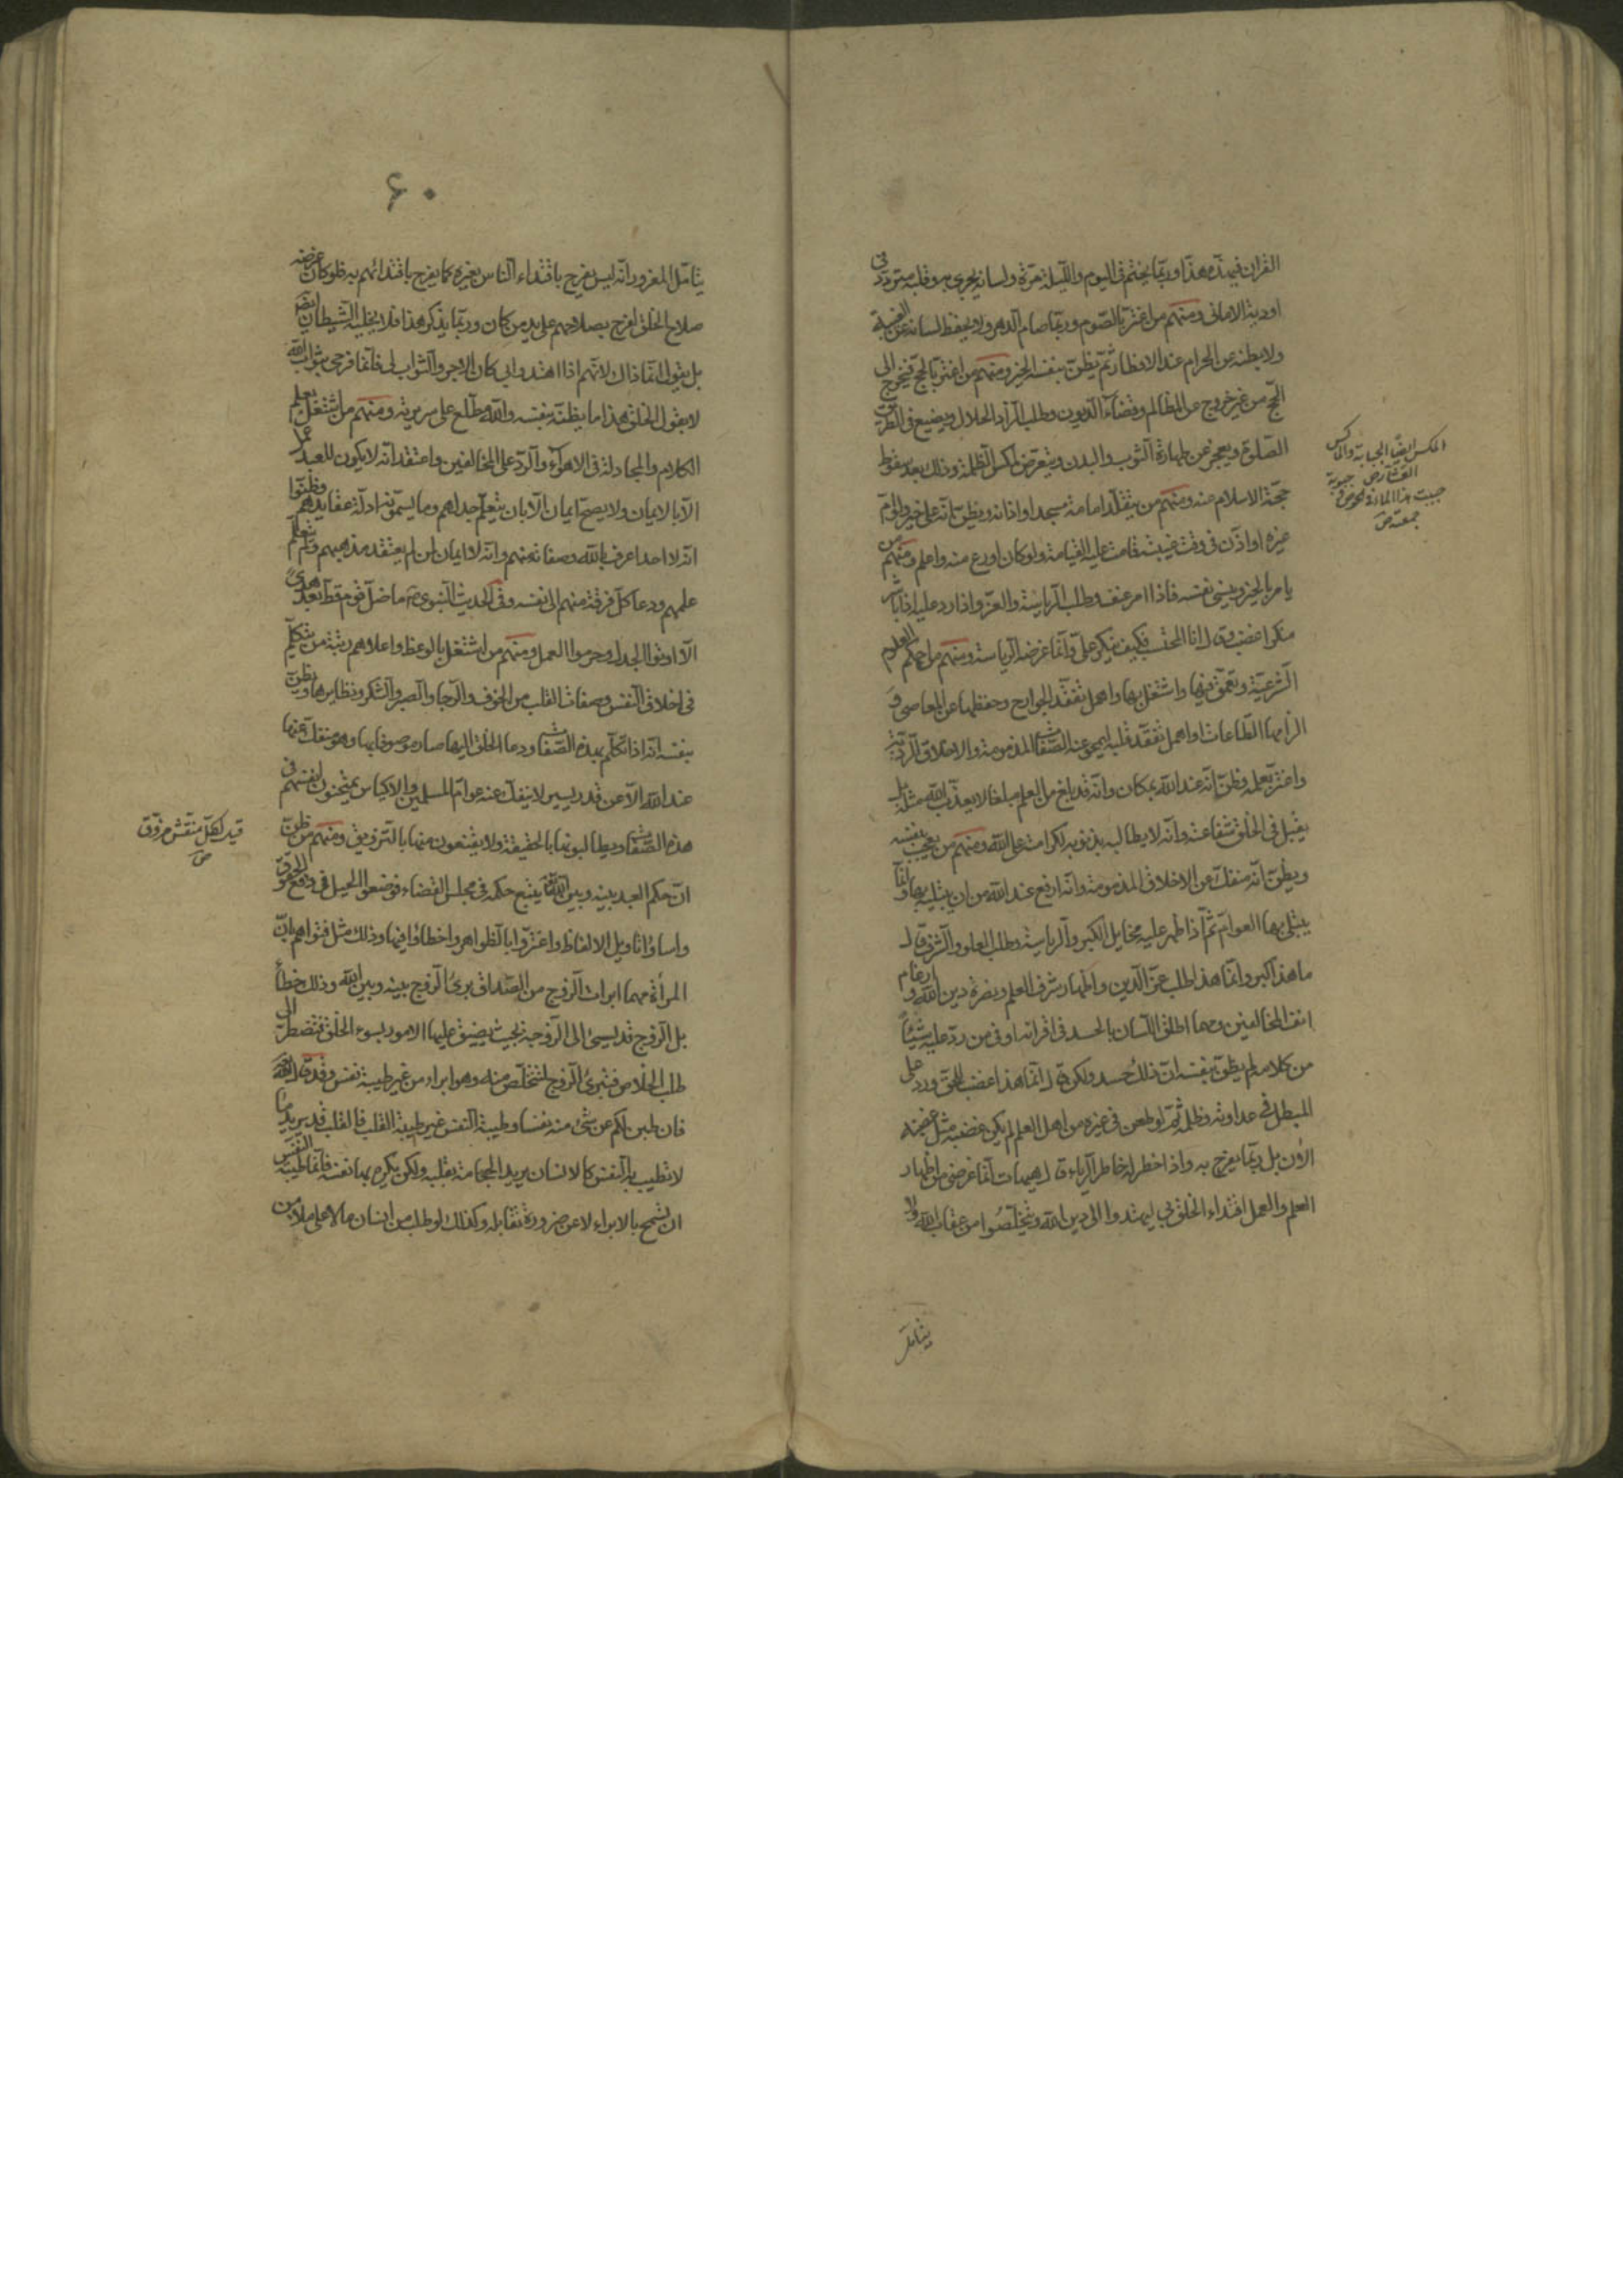 القران فيهذه هذا وربما يختم في اليوم والليلة مرة ولسانه يجري به وقلبه متردد في
اودية الاماني ومنهم من اغتر بالصوم وربما صام الدهر ولا يحفظ لسانه عن الغيبة
ولا بطنه عن الحرام عند الافطار ثم يظن بنفسه الخير ومنهم من اغتر بالحج فيخرج الى
الحج من غير خروج عن المظالم وقضاء الديون وطلب الزاد الحلال ويضيع في الطريق
الصلوة ويعجز عن طهارة الثوب والبدن ويتعرض لمكس الظلمة وذلك بعد سقوط
حجة الاسلام عنه ومنهم من يتقلد امامة مسجد او اذانه ويظن انه على خير ولو ام
غيره او اذن في وقت غيبته قامت عليه القيامة ولو كان اورع منه واعلم ومنهم من
يامر بالخير وينسى نفسه فاذا امر عنف وطلب الرياسة والعز واذا رد عليه اذا باشر
منكرا غضب وقال انا المحتسب فكيف ينكر علي وانما غرضه الرياسة ومنهم من احكم العلوم
الشرعية وتعمق فيها واشتغل بها واهمل تفقد الجوارح وحفظها عن المعاصي و
الزامها الطاعات او اهمل تفقد قلبه ليمحو عنه الصفات المذمومة والاخلاق الردية
واغتر بعلمه وظن انه عند الله بمكان وانه قد بلغ من العلم مبلغا لا يعذب الله مثله بل
يقبل في الخلق شفاعته وانه لا يطالبه بذنوبه لكرامته على الله ومنهم من يعجب بنفسه
ويظن انه منفك عن الاخلاق المذمومة وانه ارفع عند الله من ان يبتليه بها وانما
يبتلى بها العوام ثم اذا ظهر عليه مخايل الكبر والرياسة وطلب العلو والشرف قال
ما هذا كبر وانما هذا طلب عز الدين واظهار شرف العلم ونصرة دين الله وارغام
انف المخالفين ومهما اطلق اللسان بالحسد في اقرانه او في من رد عليه شيئا
من كلامه لم يظن بنفسه ان ذلك حسد ولكن قال انما هذا غضب للحق ورد على
المبطل في عداوته وظلمه ثم لو طعن في غيره من اهل العلم لم يكن غضبه مثل غضبه
الان بل ربما يفرح به واذا خطر له خاطر الرياء قال هيهات انما غرضي من اظهار
العلم والعمل اقتداء الخلق بي ليهتدوا الى دين الله ويتخلصوا من عقاب الله ولا
يتامل
المكس ايضا الجباية والماكس
العشار ص جبوته
جبيت هذا الماء في الحوض
جمعته ص
۶۰
يتامل المغرور انه ليس يفرح باقتداء الناس بغيره كما يفرح باقتدائهم به فلو كان غرضه
صلاح الخلق لفرح بصلاحهم على يد من كان وربما يذكر هذا فلا يخليه الشيطان ايضا
بل يقول انما ذاك لانهم اذا اهتدوا بي كان الاجر والثواب لي فانما فرحي بثواب الله
لا بقول الخلق هذا ما يظنه بنفسه والله مطلع على سريرته ومنهم من اشتغل بعلم
الكلام والمجادلة في الاهواء والرد على المخالفين واعتقد انه لا يكون للعبد عمل
الا بالايمان ولا يصح ايمان الا بان يتعلم جدلهم وما يسمونه ادلة عقايدهم وظنوا
انه لا احد اعرف بالله وصفاته منهم وانه لا ايمان لمن لم يعتقد مذهبهم ولم يتعلم
علمهم ودعا كل فرقة منهم الى نفسه وفي الحديث النبوي ما ضل قوم قط بعد هدى
الا اوتوا الجدل وحرموا العمل ومنهم من اشتغل بالوعظ واعلاهم رتبة من يتكلم
في اخلاق النفس وصفات القلب من الخوف والرجا والصبر والشكر ونظايرها ويظن
بنفسه انه اذا تكلم بهذه الصفات ودعا الخلق اليها صار موصوفا بها وهو منفك عنها
عند الله الا عن قدر يسير لا ينفك عنه عوام المسلمين والاكياس يمتحنون انفسهم في
هذه الصفات ويطالبونها بالحقيقة ولا يقنعون منها بالتزويق ومنهم من ظن
ان حكم العبد بينه وبين الله يتبع حكمه في مجلس القضاء فوضعوا الحيل في دفع الحقوق
واساؤا تاويل الالفاظ واغتروا بالظواهر واخطاؤا فيها وذلك مثل فتواهم بان
المرأة مهما ابرات الزوج من الصداق برئ الزوج بينه وبين الله وذلك خطأ
بل الزوج قد يسيئ الى الزوجه بحيث يضيق عليها الامور بسوء الخلق فتضطر الى
طلب الخلاص فتبرئ الزوج لتتخلص منه وهو ابراء من غير طيبة نفس وقد قال الله تعالى
فان طبن لكم عن شئ منه نفسا وطيبة النفس غير طيبة القلب فالقلب قد يريد ما
لا تطيب به النفس كالانسان يريد الحجامة بقلبه ولكن يكرهها نفسه فانما طيبة النفس
ان تسمح بالابراء لا عن ضرورة تقابله وكذلك لو طلب من انسان مالا على ملأ من
قيل لكل منقش مزوق
ص